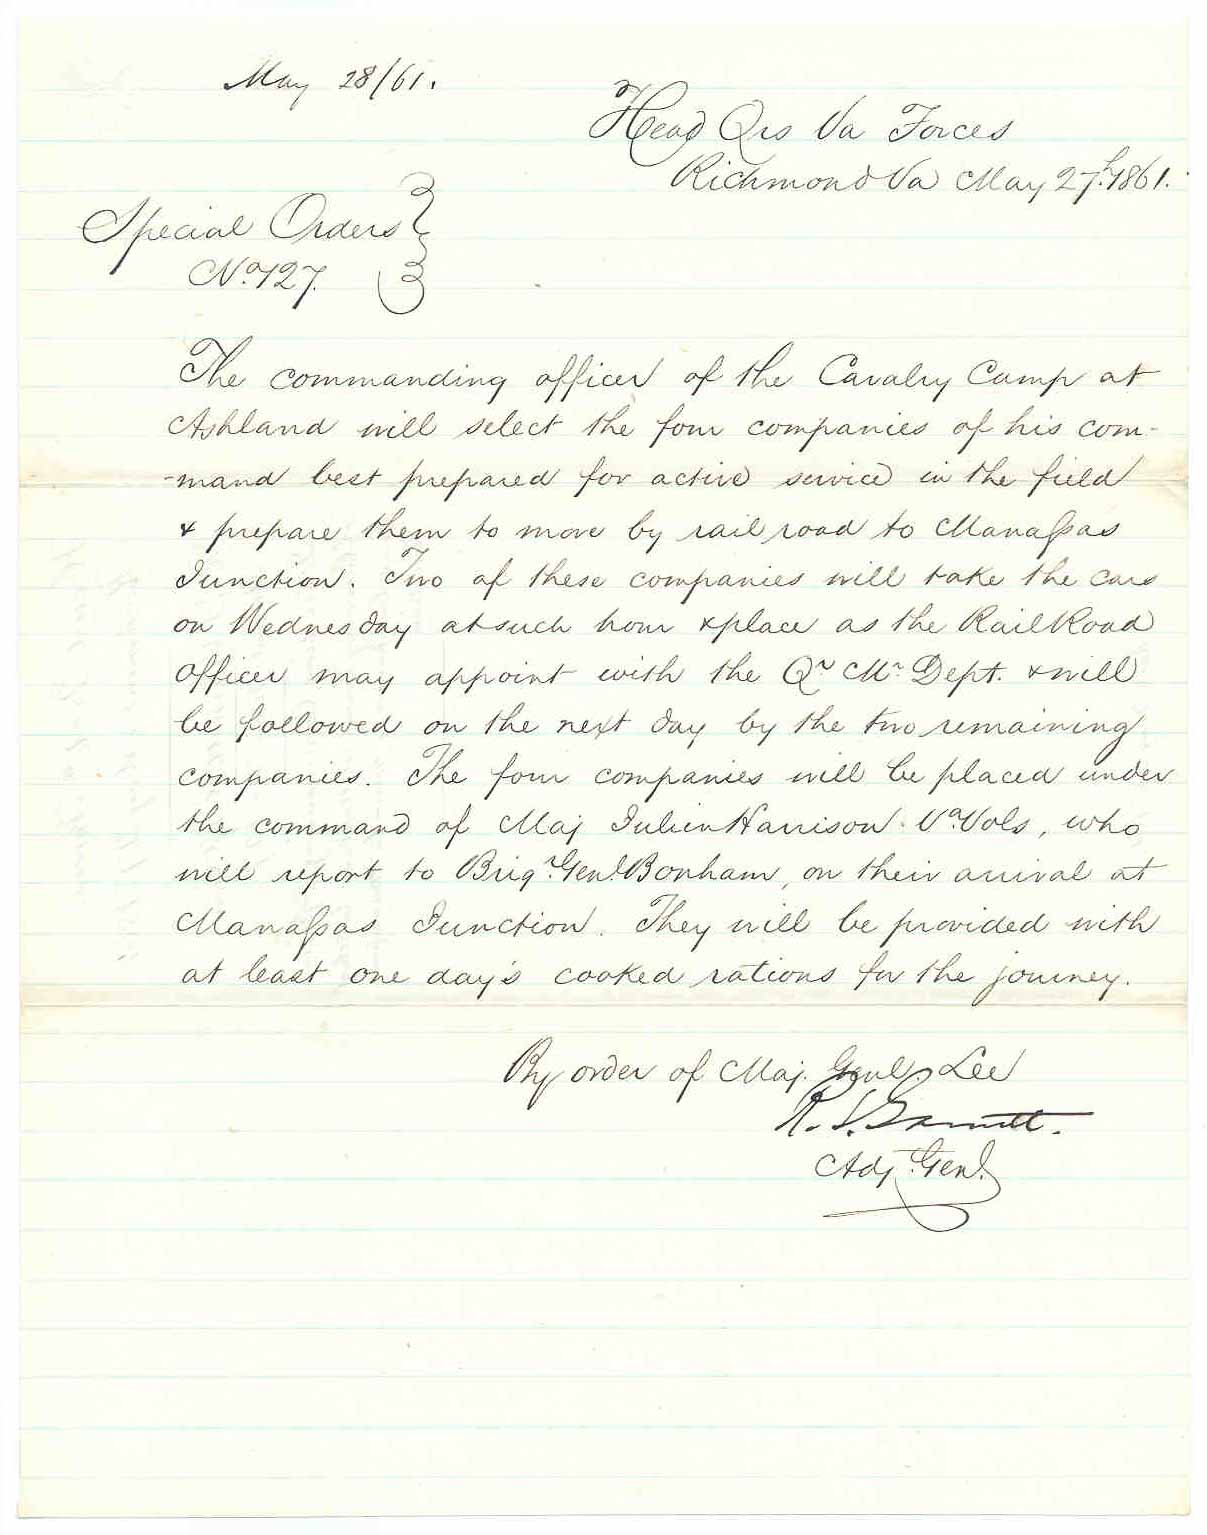 May 28/61.
Head Qrs Va Forces
Richmond Va May 27th 1861.
Special Orders
No. 127.
The commanding officer of the Cavalry Camp at
Ashland will select the four companies of his com-
-mand best prepared for active service in the field
& prepare them to move by rail road to Manassas
Junction. Two of these companies will take the cars
on Wednesday at such hour & place as the Rail Road
Officer may appoint with the Qr Mr Dept. & will
be followed on the next day by the two remaining
companies. The four companies will be placed under
the command of Maj Julien Harrison Va Vols, who
will report to Brigr. Genl. Bonham, on their arrival at
Manassas Junction. They will be provided with
at least one day's cooked rations for the journey.
By order of Maj. Genl. Lee
R. S. Garnett.
Adj. Genl.